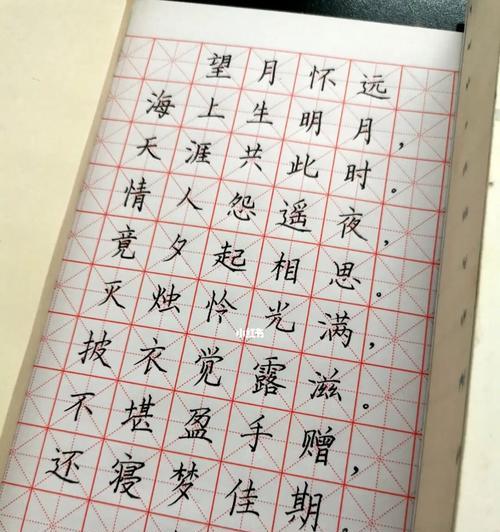 望月怀远
海上生明月，
天涯共此时。
情人怨遥夜，
竟夕起相思。
灭烛怜光满，
披衣觉露滋。
不堪盈手赠，
还寝梦佳期
小红书